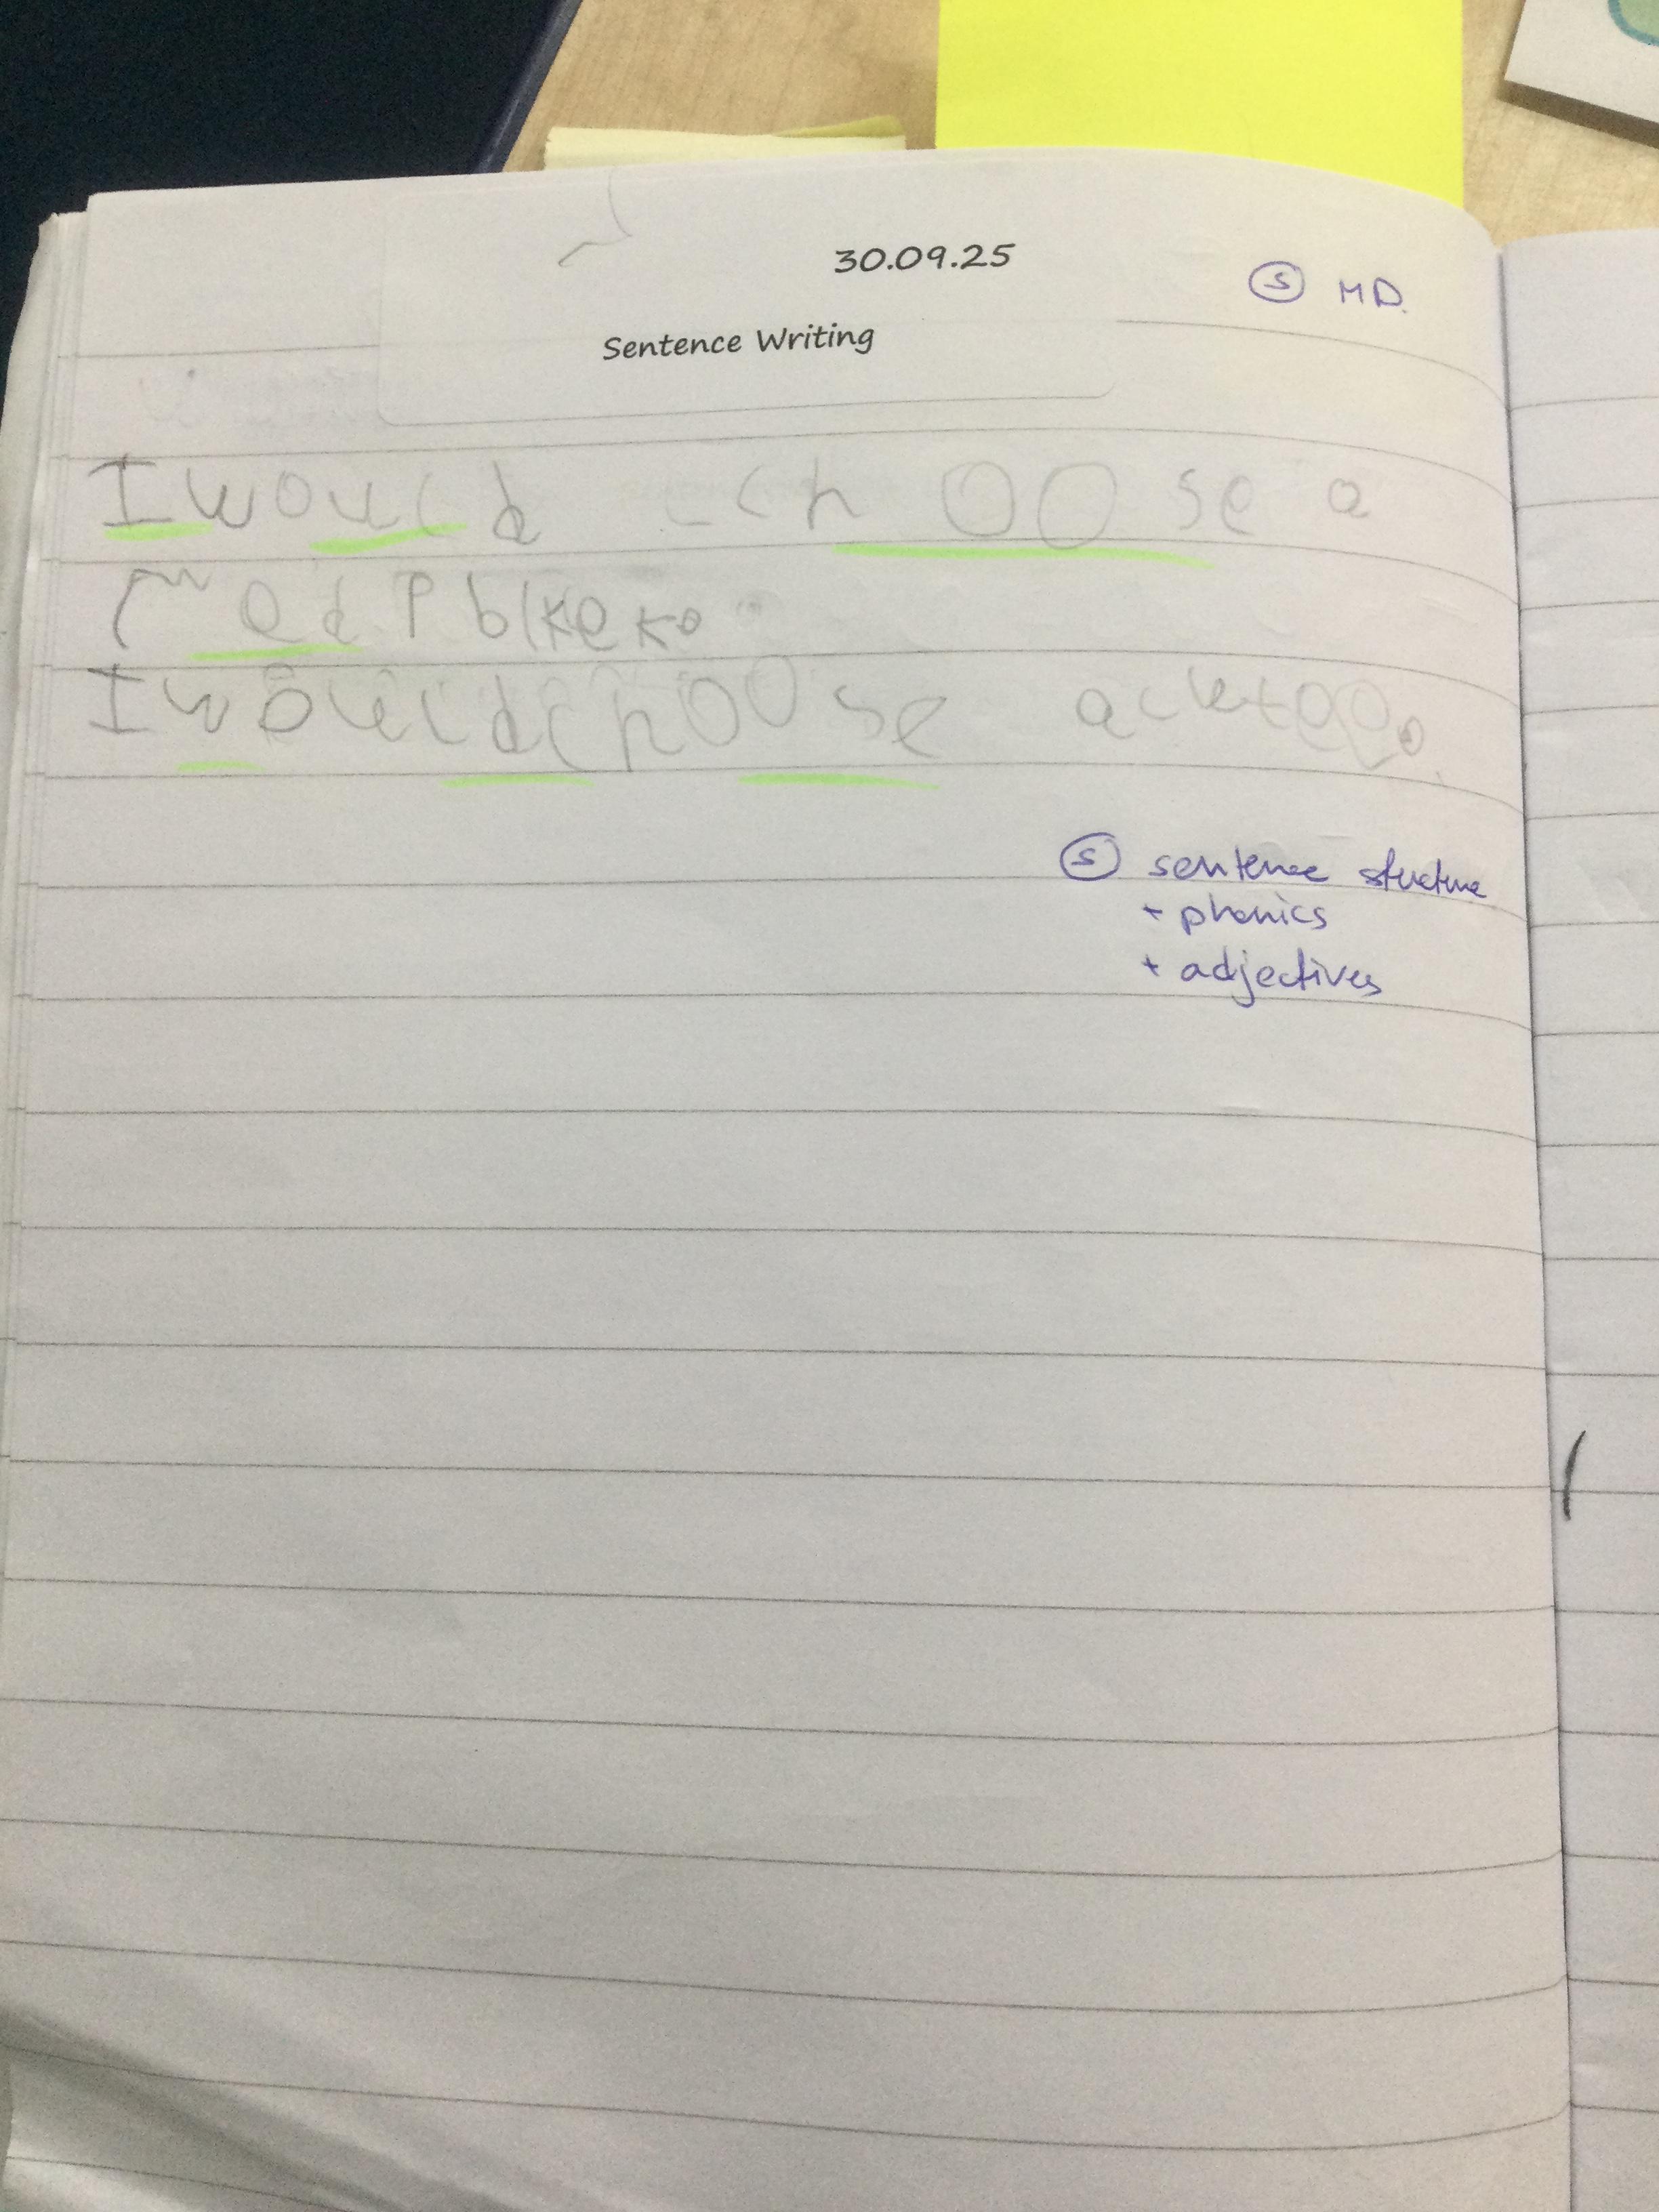 30.09.25
Ⓢ MD.
Sentence Writing
I would choose a
red
I would choose a
Ⓢ sentence structure
+ phonics
+ adjectives